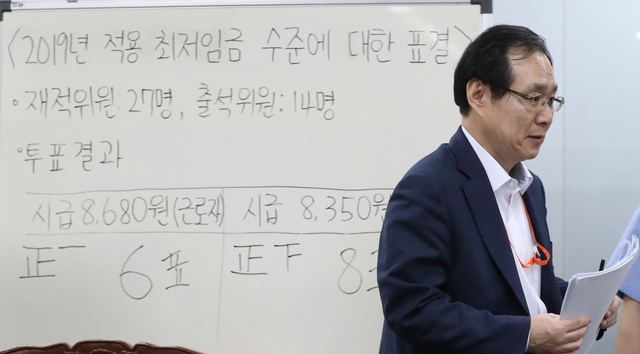 <2019년 적용 최저임금 수준에 대한 표결>
• 재적위원: 27명, 출석위원: 14명
• 투표결과
시급 8,680원(근로자) 시급 8,350원
正一 6표 正下 8표